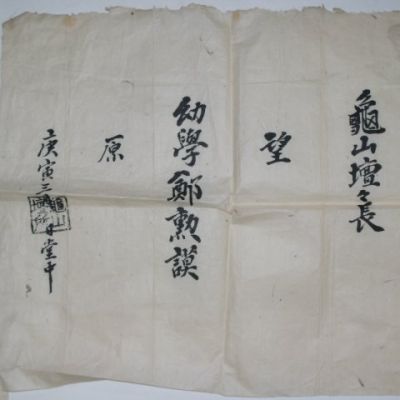 龜山壇〻長
望
幼學鄭勳謨
原
庚寅三月日堂中